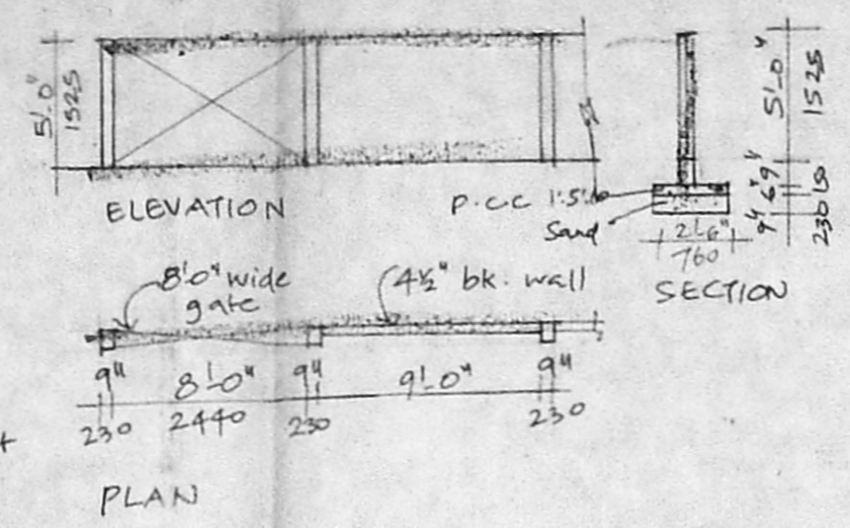 5'-0"
1525
ELEVATION
P.C.C 1:5:10
Sand
5'-0"
1525
9"
6"
9"
230
2'-6"
760
SECTION
8'-0" wide
gate
4½" bk. wall
9" 8'-0" 9" 9'-0" 9"
230 2440 230 230
PLAN